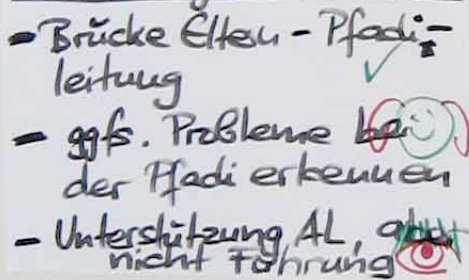 - Brücke Eltern - Pfadi-
leitung
- ggfs. Probleme bei
der Pfadi erkennen
- Unterstützung AL, aber
nicht Führung